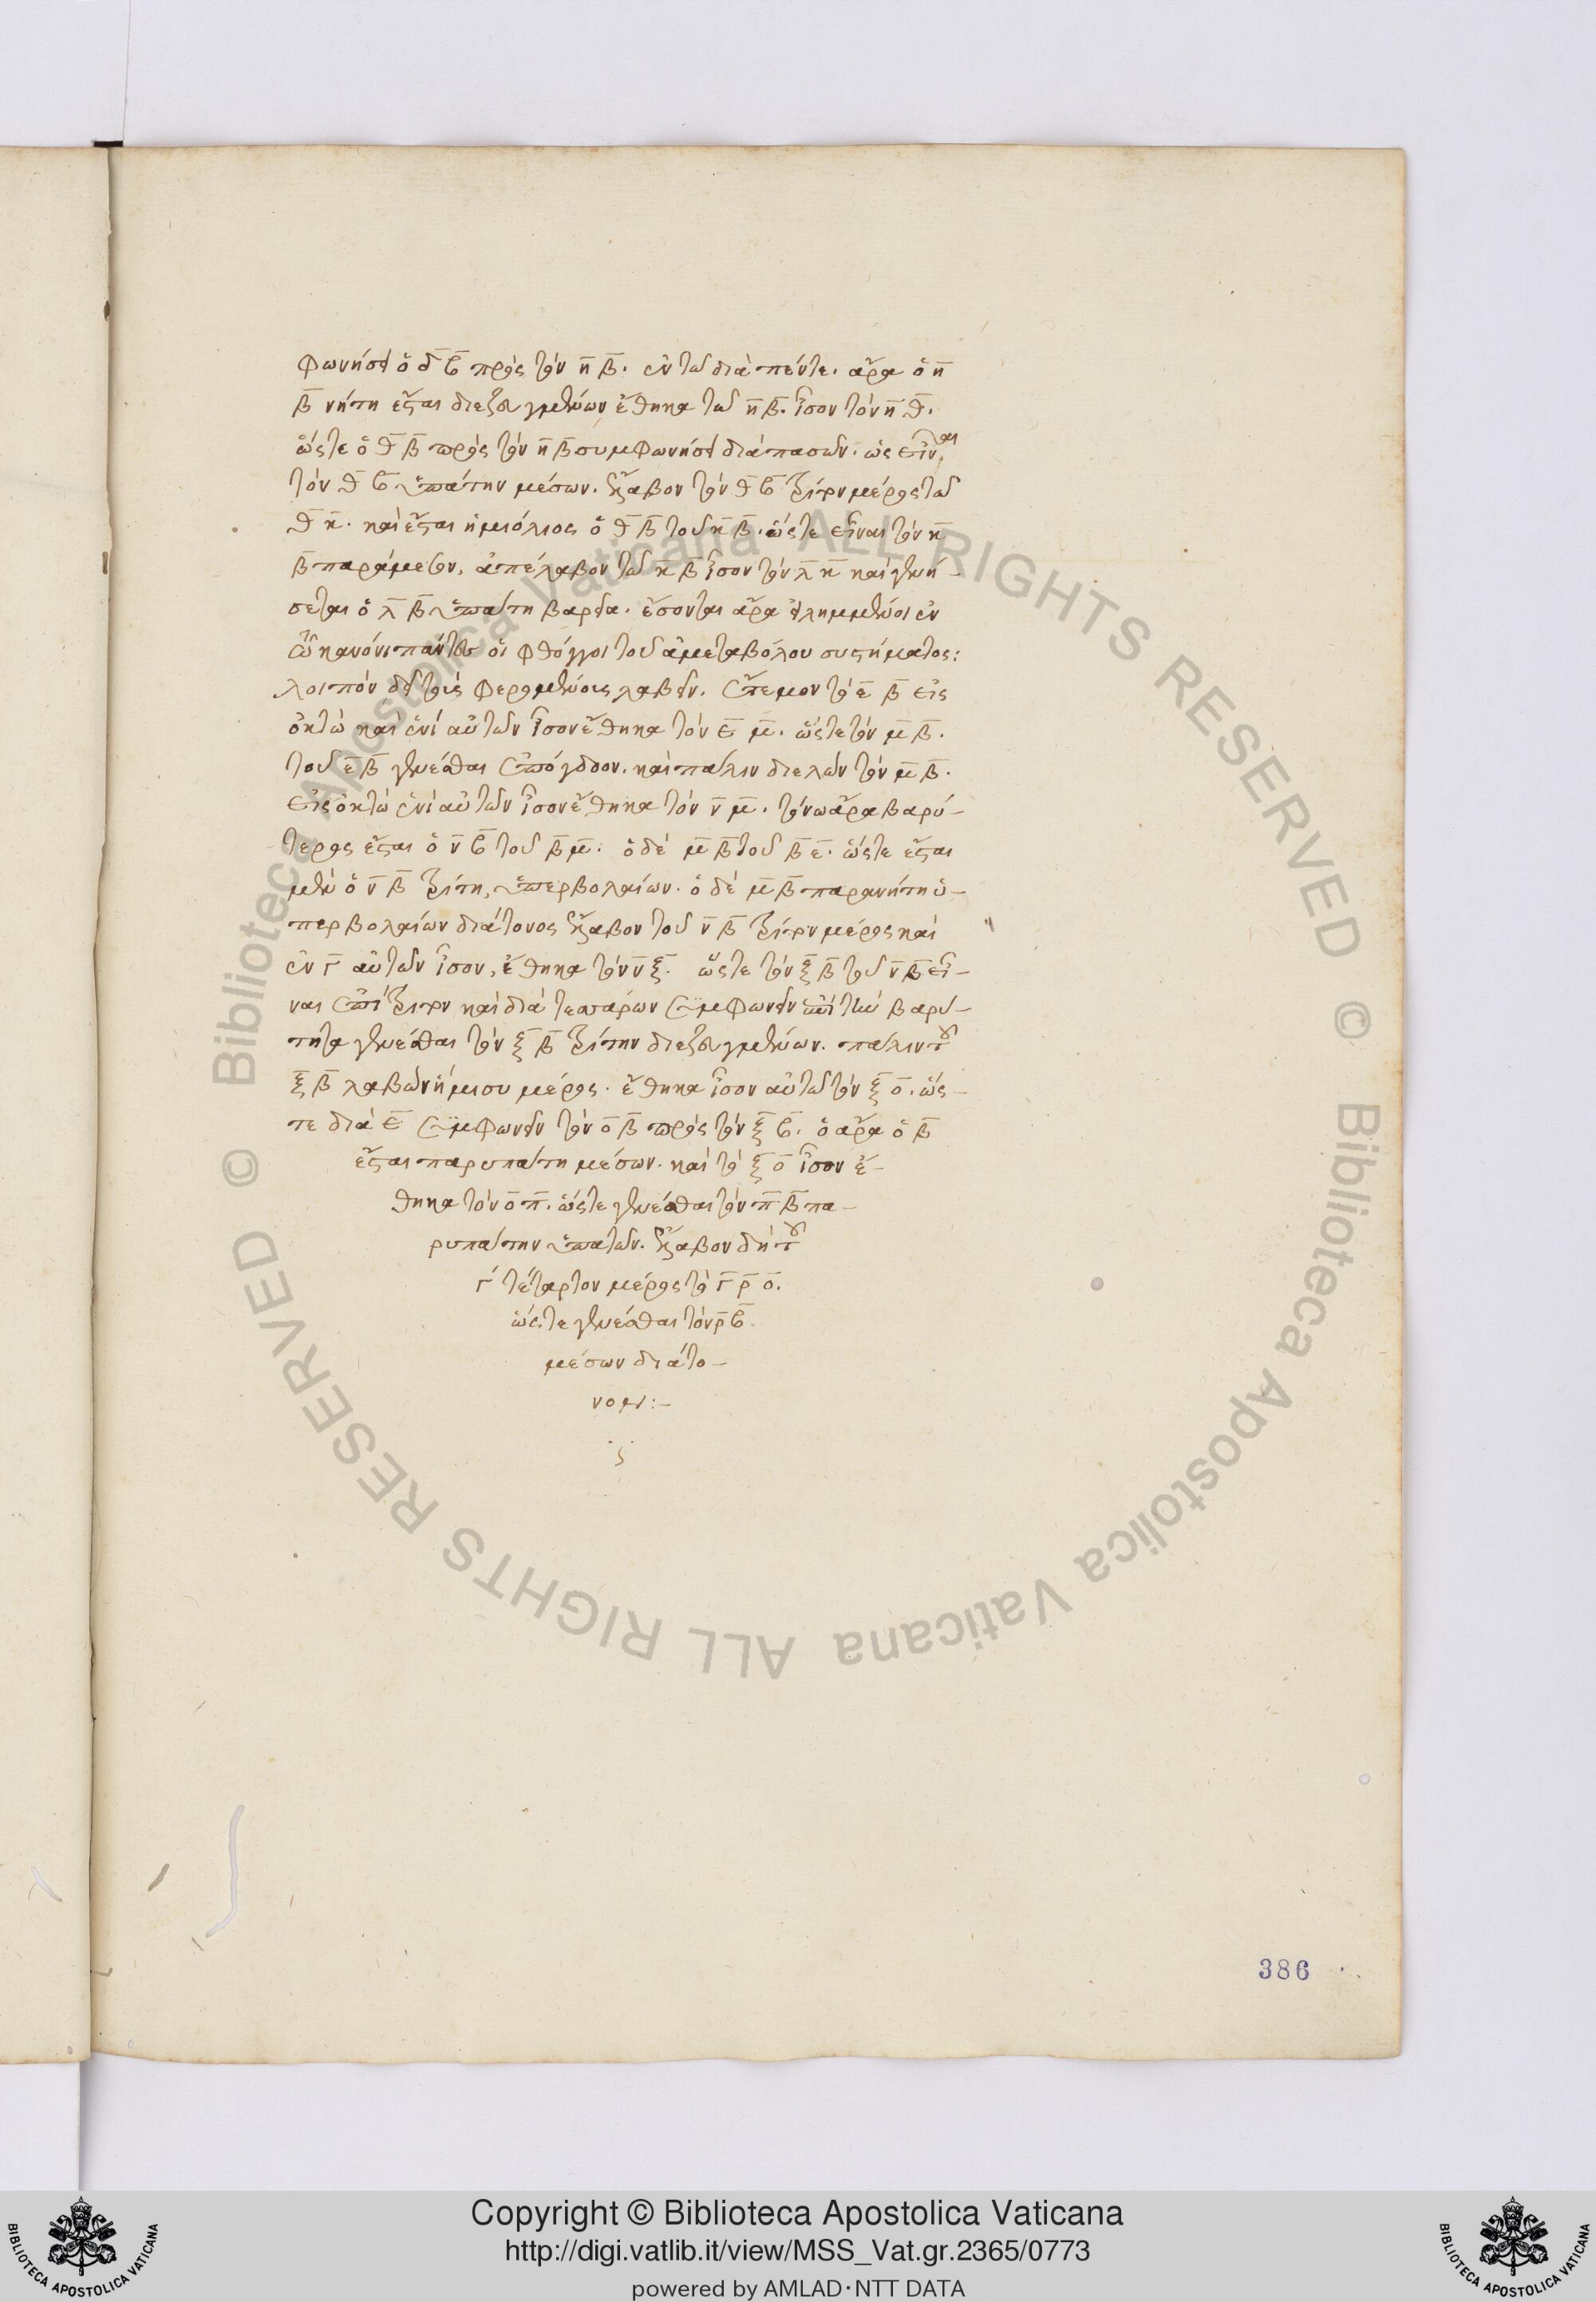 φωνήσει ὁ δ̅ β̅ πρὸς τὸν η̅ β̅. ἐν τῶ διὰ πέντε. ἄρα ὁ η̅
β̅ νήτη ἔσται διεζευγμένων ἔθηκα τῶ η̅ β̅. ἴσον τὸν η̅ θ̅.
ὥστε ὁ θ̅ β̅ πρὸς τὸν η̅ β̅ συμφωνήσει διὰ πασῶν. ὡς εἶναι
τὸν θ̅ β̅ ὑπάτην μέσων. ἔλαβον τὸν θ̅ β̅ τρίτον μέρος τῶ
θ̅ κ̅. καὶ ἔσται ἡμιόλιος ὁ θ̅ β̅ τοῦ κ̅ β̅. ὥστε εἶναι τὸν κ̅
β̅ παράμεσον. ἀπέλαβον τῶ κ̅ β̅ ἴσον τὸν λ̅ κ̅ καὶ γενή-
σεται ὁ λ̅ β̅ ὑπάτη βαρεῖα. ἔσονται ἄρα εἰλημμένοι ἐν
τῶ κανόνι πάντες οἱ φθόγγοι τοῦ ἀμεταβόλου συστήματος:
λοιπὸν δεῖ τοὺς φερομένους λαβεῖν. ἔτεμον τὸ ε̅ β̅ εἰς
ὀκτὼ καὶ ἑνὶ αὐτῶν ἴσον ἔθηκα τὸν ε̅ μ̅. ὥστε τὸν μ̅ β̅.
τοῦ ε̅ β̅ γενέσθαι ἐπόγδοον. καὶ πάλιν διελὼν τὸν μ̅ β̅.
εἰς ὀκτὼ ἑνὶ αὐτῶν ἴσον ἔθηκα τὸν ν̅ μ̅. τόνω ἄρα βαρύ-
τερος ἔσται ὁ ν̅ β̅ τοῦ β̅ μ̅. ὁ δὲ μ̅ β̅ τοῦ β̅ ε̅. ὥστε ἔσται
μὲν ὁ ν̅ β̅ τρίτη, ὑπερβολαίων. ὁ δὲ μ̅ β̅ παρανήτη ὑ-
περβολαίων διάτονος ἔλαβον τοῦ ν̅ β̅ τρίτον μέρος καὶ
ἐν γ̅ αὐτῶν ἴσον, ἔθηκα τὸν ν̅ ξ̅. ὥστε τὸν ξ̅ β̅ τοῦ ν̅ β̅ εἶ-
ναι ἐπίτριτον καὶ διὰ τεσσάρων συμφωνεῖν ἐπὶ τὴν βαρύ-
τητα γενέσθαι τὸν ξ̅ β̅ τρίτην διεζευγμένων. πάλιν τοῦ
ξ̅ β̅ λαβὼν ἥμισυ μέρος. ἔθηκα ἴσον αὐτῶ τὸν ξ̅ ο̅. ὥσ-
τε διὰ ε̅ συμφωνεῖν τὸν ο̅ β̅ πρὸς τὸν ξ̅ β̅. ὁ ἄρα ὁ β̅
ἔσται παρυπάτη μέσων. καὶ τὸ ξ̅ ο̅ ἴσον ἔ-
θηκα τὸν ο̅ π̅. ὥστε γενέσθαι τὸν π̅ β̅ πα-
ρυπάτην ὑπατῶν. ἔλαβον δὴ τοῦ
γ΄ τέταρτον μέρος τὸ γ̅ ρ̅ ο̅.
ὥστε γενέσθαι τὸν ρ̅ β̅.
μέσων διάτο-
νον:-